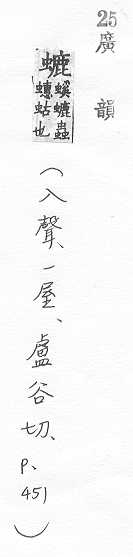 25廣韻
螰
螇螰蟲
蟪蛄也
（入聲、一屋、盧谷切、p、451）